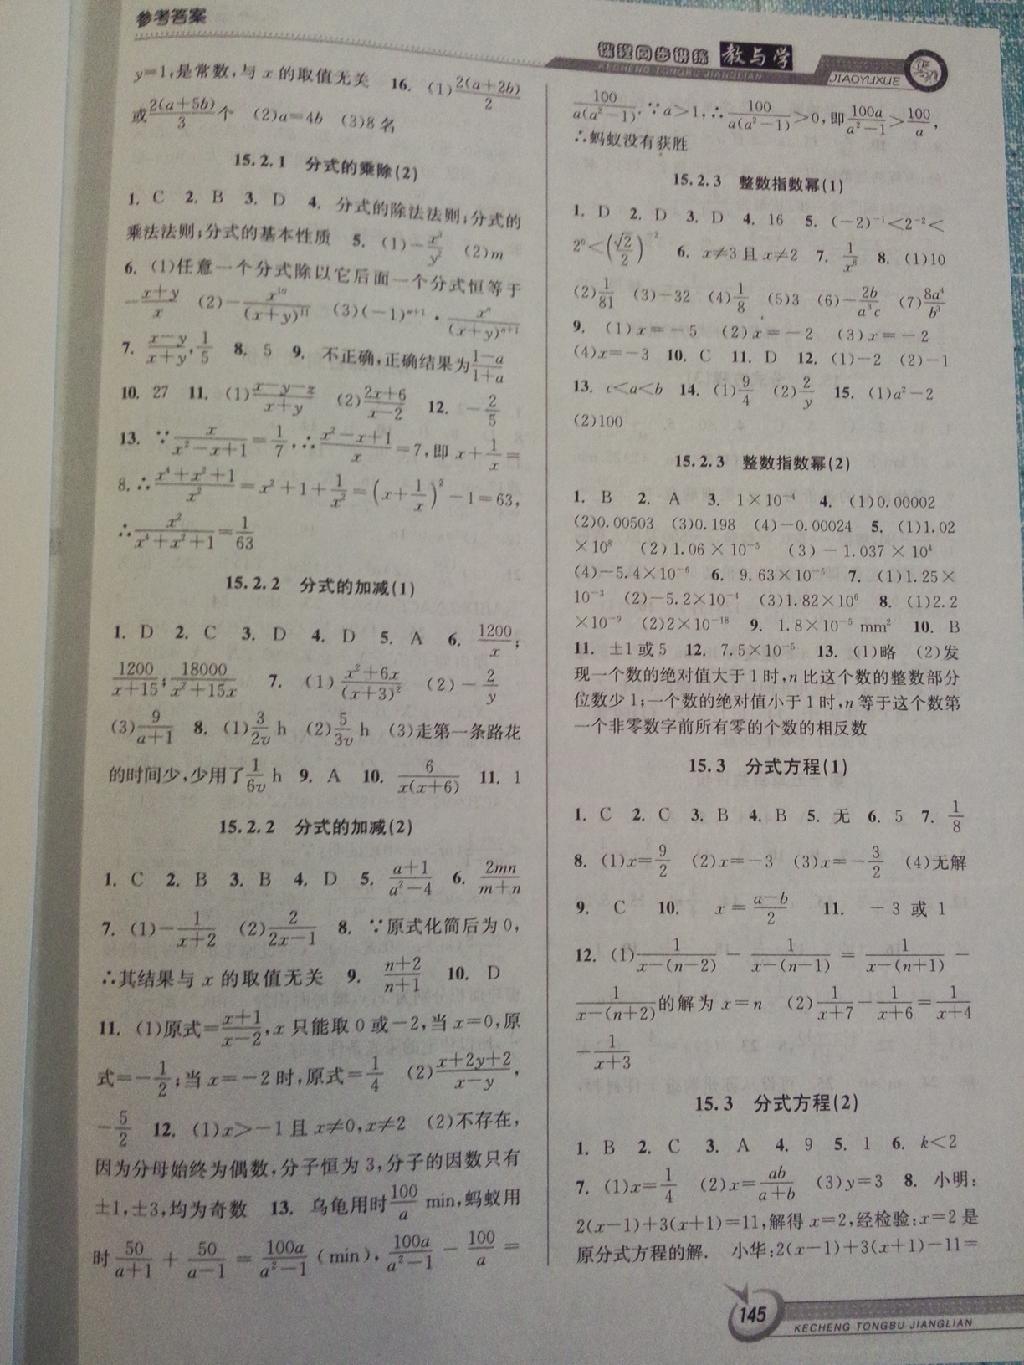 参考答案
课程同步讲练 教与学
KECHENG TONGBU JIANGLIAN
JIAOYUXUE
y=1,是常数,与 x 的取值无关 16. (1) 2(a+2b)/2
或 2(a+5b)/3 个 (2)a=4b (3)8 名
15.2.1 分式的乘除(2)
1. C 2. B 3. D 4. 分式的除法法则;分式的
乘法法则;分式的基本性质 5. (1) (2)m
6. (1)任意一个分式除以它后面一个分式恒等于
-(x+y)/x (2) (3)(-1)ⁿ⁺¹ ·
7. (x-y)/(x+y), 1/5 8. 5 9. 不正确,正确结果为 (1-a)/(1+a)
10. 27 11. (1) (x-y-z)/(x+y) (2) (2x+6)/(x-2) 12. -2/5
13. ∵ x/(x²-x+1) = 1/7, ∴ (x²-x+1)/x = 7, 即 x + 1/x =
8, ∴ (x⁴+x²+1)/x² = x²+1+1/x² = (x+1/x)²-1=63,
∴ x²/(x⁴+x²+1) = 1/63
15.2.2 分式的加减(1)
1. D 2. C 3. D 4. D 5. A 6. 1200/x;
1200/(x+15); 18000/(x²+15x) 7. (1) (x²+6x)/(x+3)² (2) -2/y
(3) 9/(a+1) 8. (1) 3/2v h (2) 5/3v h (3)走第一条路花
的时间少,少用了 1/6v h 9. A 10. 6/x(x+6) 11. 1
15.2.2 分式的加减(2)
1. C 2. B 3. B 4. D 5. (a+1)/(a²-4) 6. 2mn/(m+n)
7. (1) -1/(x+2) (2) 2/(2x-1) 8. ∵原式化简后为 0,
∴其结果与 x 的取值无关 9. (n+2)/(n+1) 10. D
11. (1)原式= (x+1)/(x-2), x 只能取 0 或-2,当 x=0,原
式=-1/2;当 x=-2 时,原式= 1/4 (2) (x+2y+2)/(x-y),
-5/2 12. (1)x>-1 且 x≠0,x≠2 (2)不存在,
因为分母始终为偶数,分子恒为 3,分子的因数只有
±1,±3,均为奇数 13. 乌龟用时 100/a min,蚂蚁用
时 50/(a+1) + 50/(a-1) = 100a/(a²-1) (min), 100a/(a²-1) - 100/a =
100/a(a²-1), ∵a>1, ∴ 100/a(a²-1) >0, 即 100a/(a²-1) > 100/a,
∴蚂蚁没有获胜
15.2.3 整数指数幂(1)
1. D 2. D 3. D 4. 16 5. (-2)⁻¹<2⁻²<
2⁰<(√2/2)⁻² 6. x≠3 且 x≠2 7. 1/x⁸ 8. (1)10
(2) 1/81 (3)-32 (4) 1/8 (5)3 (6) -2b/a³c (7) 8a⁴/b³
9. (1)x=-5 (2)x=-2 (3)x=-2
(4)x=-3 10. C 11. D 12. (1)-2 (2)-1
13. c<a<b 14. (1) 9/4 (2) 2/y 15. (1)a²-2
(2)100
15.2.3 整数指数幂(2)
1. B 2. A 3. 1×10⁻⁴ 4. (1)0.00002
(2)0.00503 (3)0.198 (4)-0.00024 5. (1)1.02
×10⁸ (2)1.06×10⁻⁵ (3)-1.037×10⁴
(4)-5.4×10⁻⁶ 6. 9.63×10⁻⁵ 7. (1)1.25×
10⁻³ (2)-5.2×10⁻⁴ (3)1.82×10⁶ 8. (1)2.2
×10⁻⁹ (2)2×10⁻¹⁸ 9. 1.8×10⁻⁵ mm² 10. B
11. ±1 或 5 12. 7.5×10⁻⁵ 13. (1)略 (2)发
现一个数的绝对值大于 1 时,n 比这个数的整数部分
位数少 1;一个数的绝对值小于 1 时,n 等于这个数第
一个非零数字前所有零的个数的相反数
15.3 分式方程(1)
1. C 2. C 3. B 4. B 5. 无 6. 5 7. 1/8
8. (1)x=9/2 (2)x=-3 (3)x=-3/2 (4)无解
9. C 10. x=(a-b)/2 11. -3 或 1
12. (1) 1/(x-(n-2)) - 1/(x-(n-1)) = 1/(x-(n+1)) -
1/(x-(n+2)) 的解为 x=n (2) 1/(x+7) - 1/(x+6) = 1/(x+4)
- 1/(x+3)
15.3 分式方程(2)
1. B 2. C 3. A 4. 9 5. 1 6. k<2
7. (1)x=1/4 (2)x=ab/(a+b) (3)y=3 8. 小明:
2(x-1)+3(x+1)=11,解得 x=2,经检验:x=2 是
原分式方程的解. 小华:2(x-1)+3(x+1)-11=
145
KECHENG TONGBU JIANGLIAN